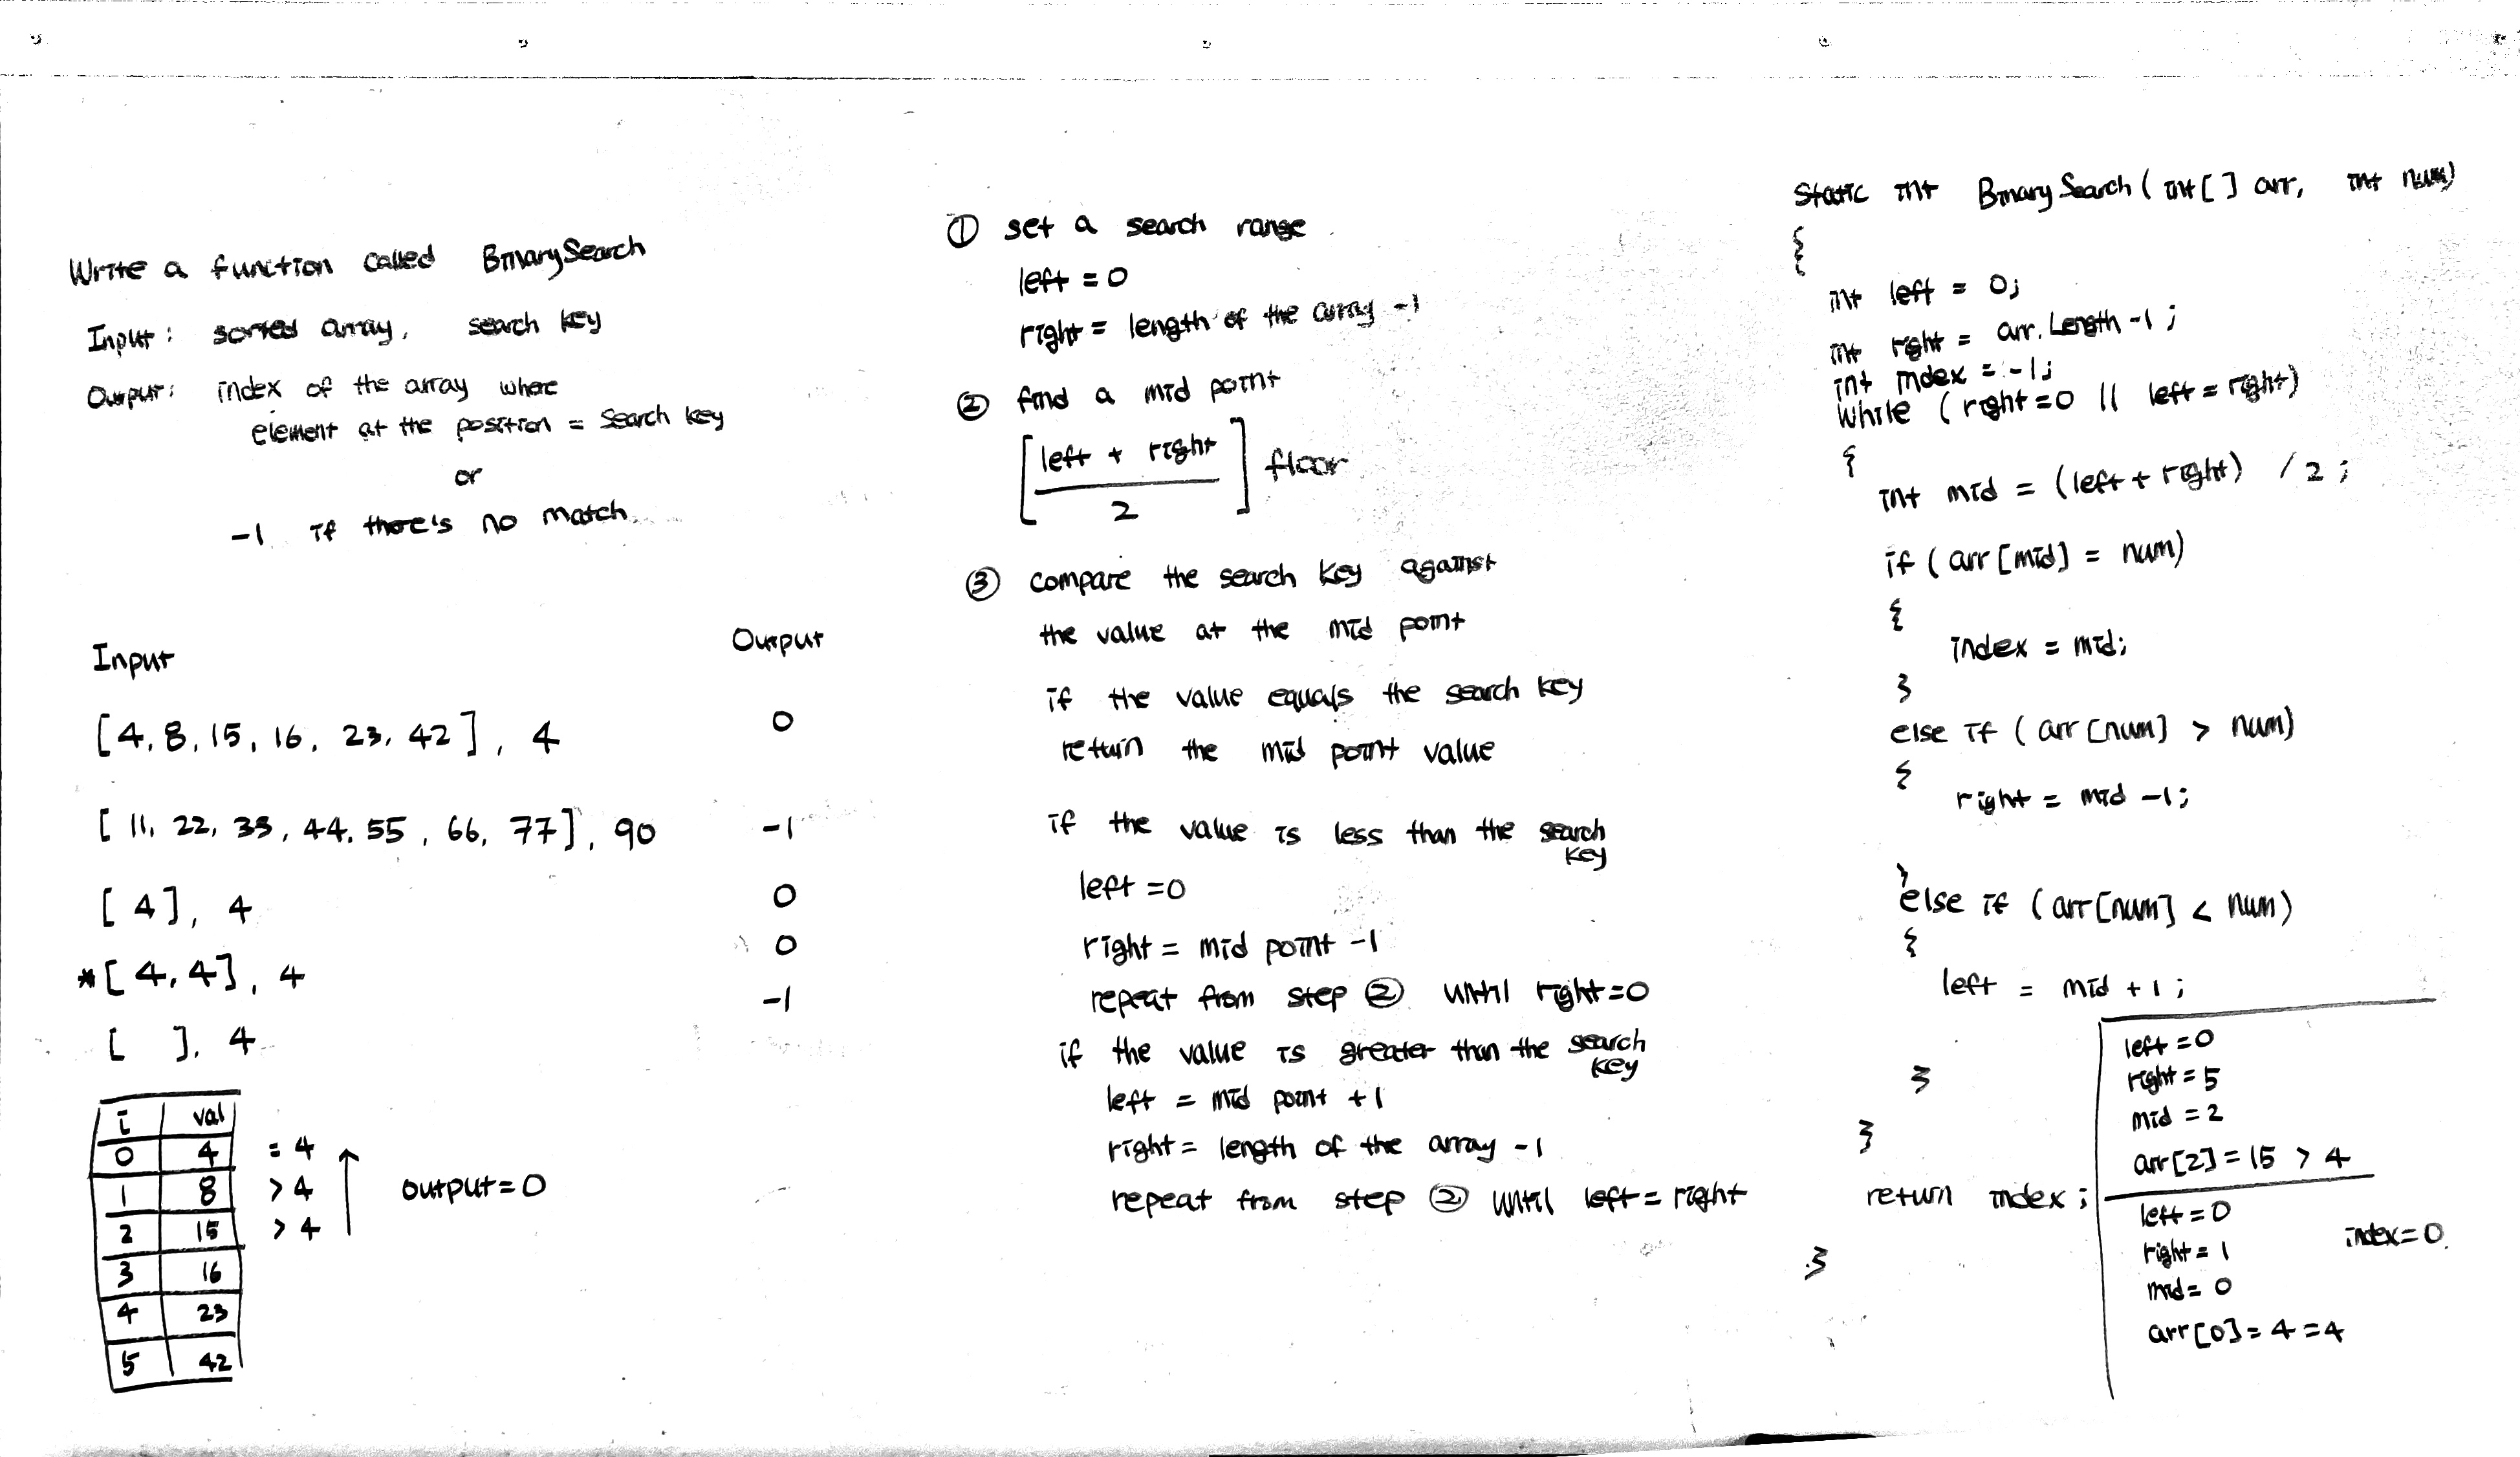 Write a function called BinarySearch
Input: sorted array, search key
Output: index of the array where
element at the position = search key
or
-1 if there's no match.
Input Output
[4, 8, 15, 16, 23, 42], 4 0
[11, 22, 33, 44, 55, 66, 77], 90 -1
[4], 4 0
*[4, 4], 4 0
[ ], 4 -1
i val
0 4 = 4
1 8 > 4 output = 0
2 15 > 4
3 16
4 23
5 42
① set a search range
left = 0
right = length of the array -1
② find a mid point
[left + right / 2] floor
③ compare the search key against
the value at the mid point
if the value equals the search key
return the mid point value
if the value is less than the search
key
left = 0
right = mid point -1
repeat from step ② until right = 0
if the value is greater than the search
key
left = mid point + 1
right = length of the array -1
repeat from step ② until left = right
static int BinarySearch(int[] arr, int num)
{
int left = 0;
int right = arr.Length -1;
int index = -1;
while (right = 0 || left = right)
{
int mid = (left + right) / 2;
if (arr[mid] = num)
{
index = mid;
}
else if (arr[num] > num)
{
right = mid -1;
}
else if (arr[num] < num)
{
left = mid + 1;
}
}
return index;
}
left = 0
right = 5
mid = 2
arr[2] = 15 > 4
left = 0
right = 1
index = 0
mid = 0
arr[0] = 4 = 4